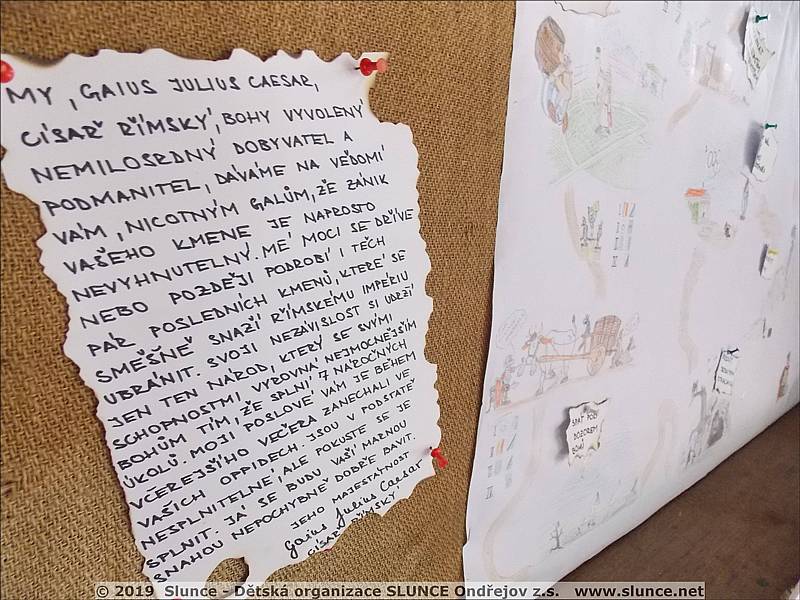 MY, GAIUS JULIUS CAESAR,
CÍSAŘ ŘÍMSKÝ, BOHY VYVOLENÝ
NEMILOSRDNÝ DOBYVATEL A
PODMANITEL, DÁVÁME NA VĚDOMÍ
VÁM, NICOTNÝM GALŮM, ŽE ZÁNIK
VAŠEHO KMENE JE NAPROSTO
NEVYHNUTELNÝ. MÉ MOCI SE DŘÍVE
NEBO POZDĚJI PODROBÍ I TĚCH
PÁR POSLEDNÍCH KMENŮ, KTERÉ SE
SMĚŠNĚ SNAŽÍ ŘÍMSKÉMU IMPÉRIU
UBRÁNIT. SVOJI NEZÁVISLOST SI UDRŽÍ
JEN TEN NÁROD, KTERÝ SE SVÝMI
SCHOPNOSTMI VYROVNÁ NEJMOCNĚJŠÍM
BOHŮM TÍM, ŽE SPLNÍ 7 NÁROČNÝCH
ÚKOLŮ. MOJI POSLOVÉ VÁM JE BĚHEM
VČEREJŠÍHO VEČERA ZANECHALI VE
VAŠICH OPPIDECH. JSOU V PODSTATĚ
NESPLNITELNÉ, ALE POKUSTE SE JE
SPLNIT. JÁ SE BUDU VAŠÍ MARNOU
SNAHOU NEPOCHYBNĚ DOBŘE BAVIT.
JEHO MAJESTÁTNOST
Gaius Julius Caesar
CÍSAŘ ŘÍMSKÝ
SPÁT POD
DOZOREM
BOHŮ
© 2019 Slunce - Dětská organizace SLUNCE Ondřejov z.s. www.slunce.net